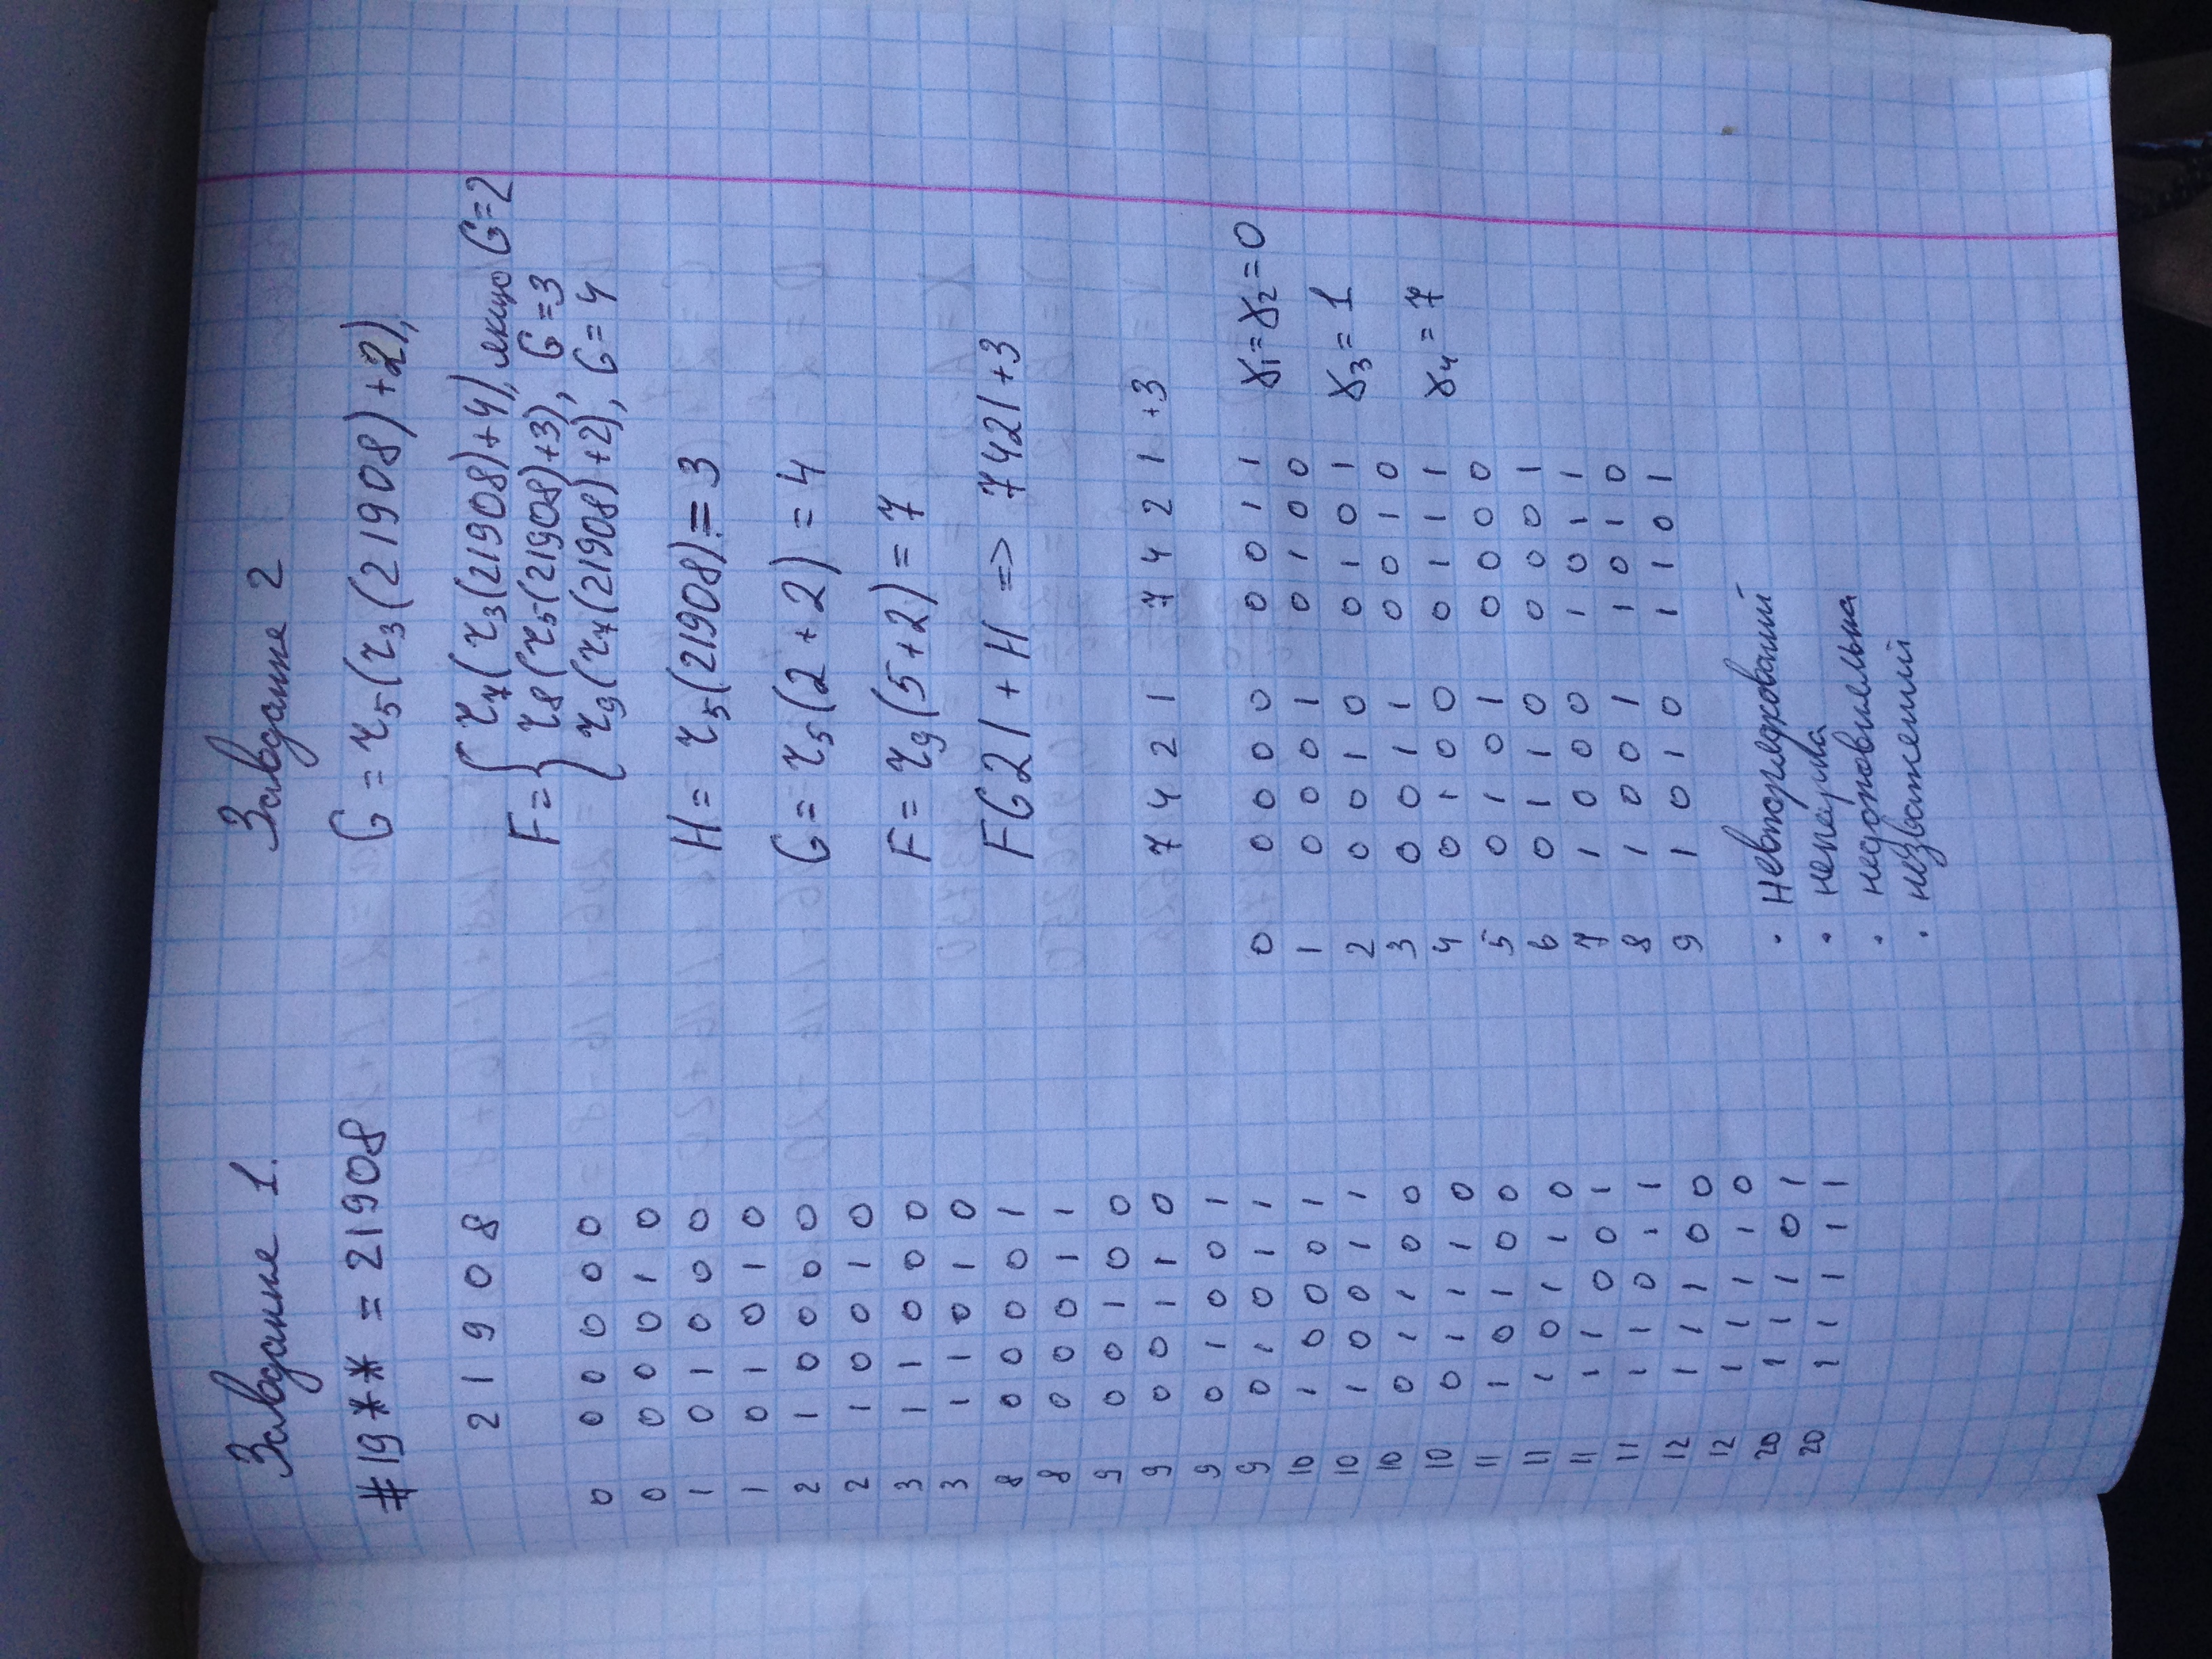 Завдання 1.
#19** = 21908
2 1 9 0 8
0 0 0 0 0 0
0 0 0 0 1 0
1 0 1 0 0 0
1 0 1 0 1 0
2 1 0 0 0 0
2 1 0 0 1 0
3 1 1 0 0 0
3 1 1 0 1 0
8 0 0 0 0 1
8 0 0 0 1 1
9 0 0 1 0 0
9 0 0 1 1 0
9 0 1 0 0 1
9 0 1 0 1 1
10 1 0 0 0 1
10 1 0 0 1 1
10 0 1 1 0 0
10 0 1 1 1 0
11 1 0 1 0 0
11 1 0 1 1 0
11 1 1 0 0 1
11 1 1 0 1 1
12 1 1 1 0 0
12 1 1 1 1 0
20 1 1 1 0 1
20 1 1 1 1 1
Завдання 2
G = r₅(r₃(21908)+2),
F = { r₇(r₃(21908)+4), якщо G=2
r₈(r₅(21908)+3), G=3
r₉(r₇(21908)+2), G=4
H = r₅(21908) = 3
G = r₅(2+2) = 4
F = r₉(5+2) = 7
FG21 + H => 7421+3
7 4 2 1 7 4 2 1 +3
0 0 0 0 0 0 0 1 1 γ₁=γ₂=0
1 0 0 0 1 0 1 0 0
2 0 0 1 0 0 1 0 1 γ₃=1
3 0 0 1 1 0 0 1 0
4 0 1 0 0 0 1 1 1 γ₄=7
5 0 1 0 1 0 0 0 0
6 0 1 1 0 0 0 0 1
7 1 0 0 0 1 0 1 1
8 1 0 0 1 1 0 1 0
9 1 0 1 0 1 1 0 1
· невпорядкований
· непарна
· недоповнельна
· незважений